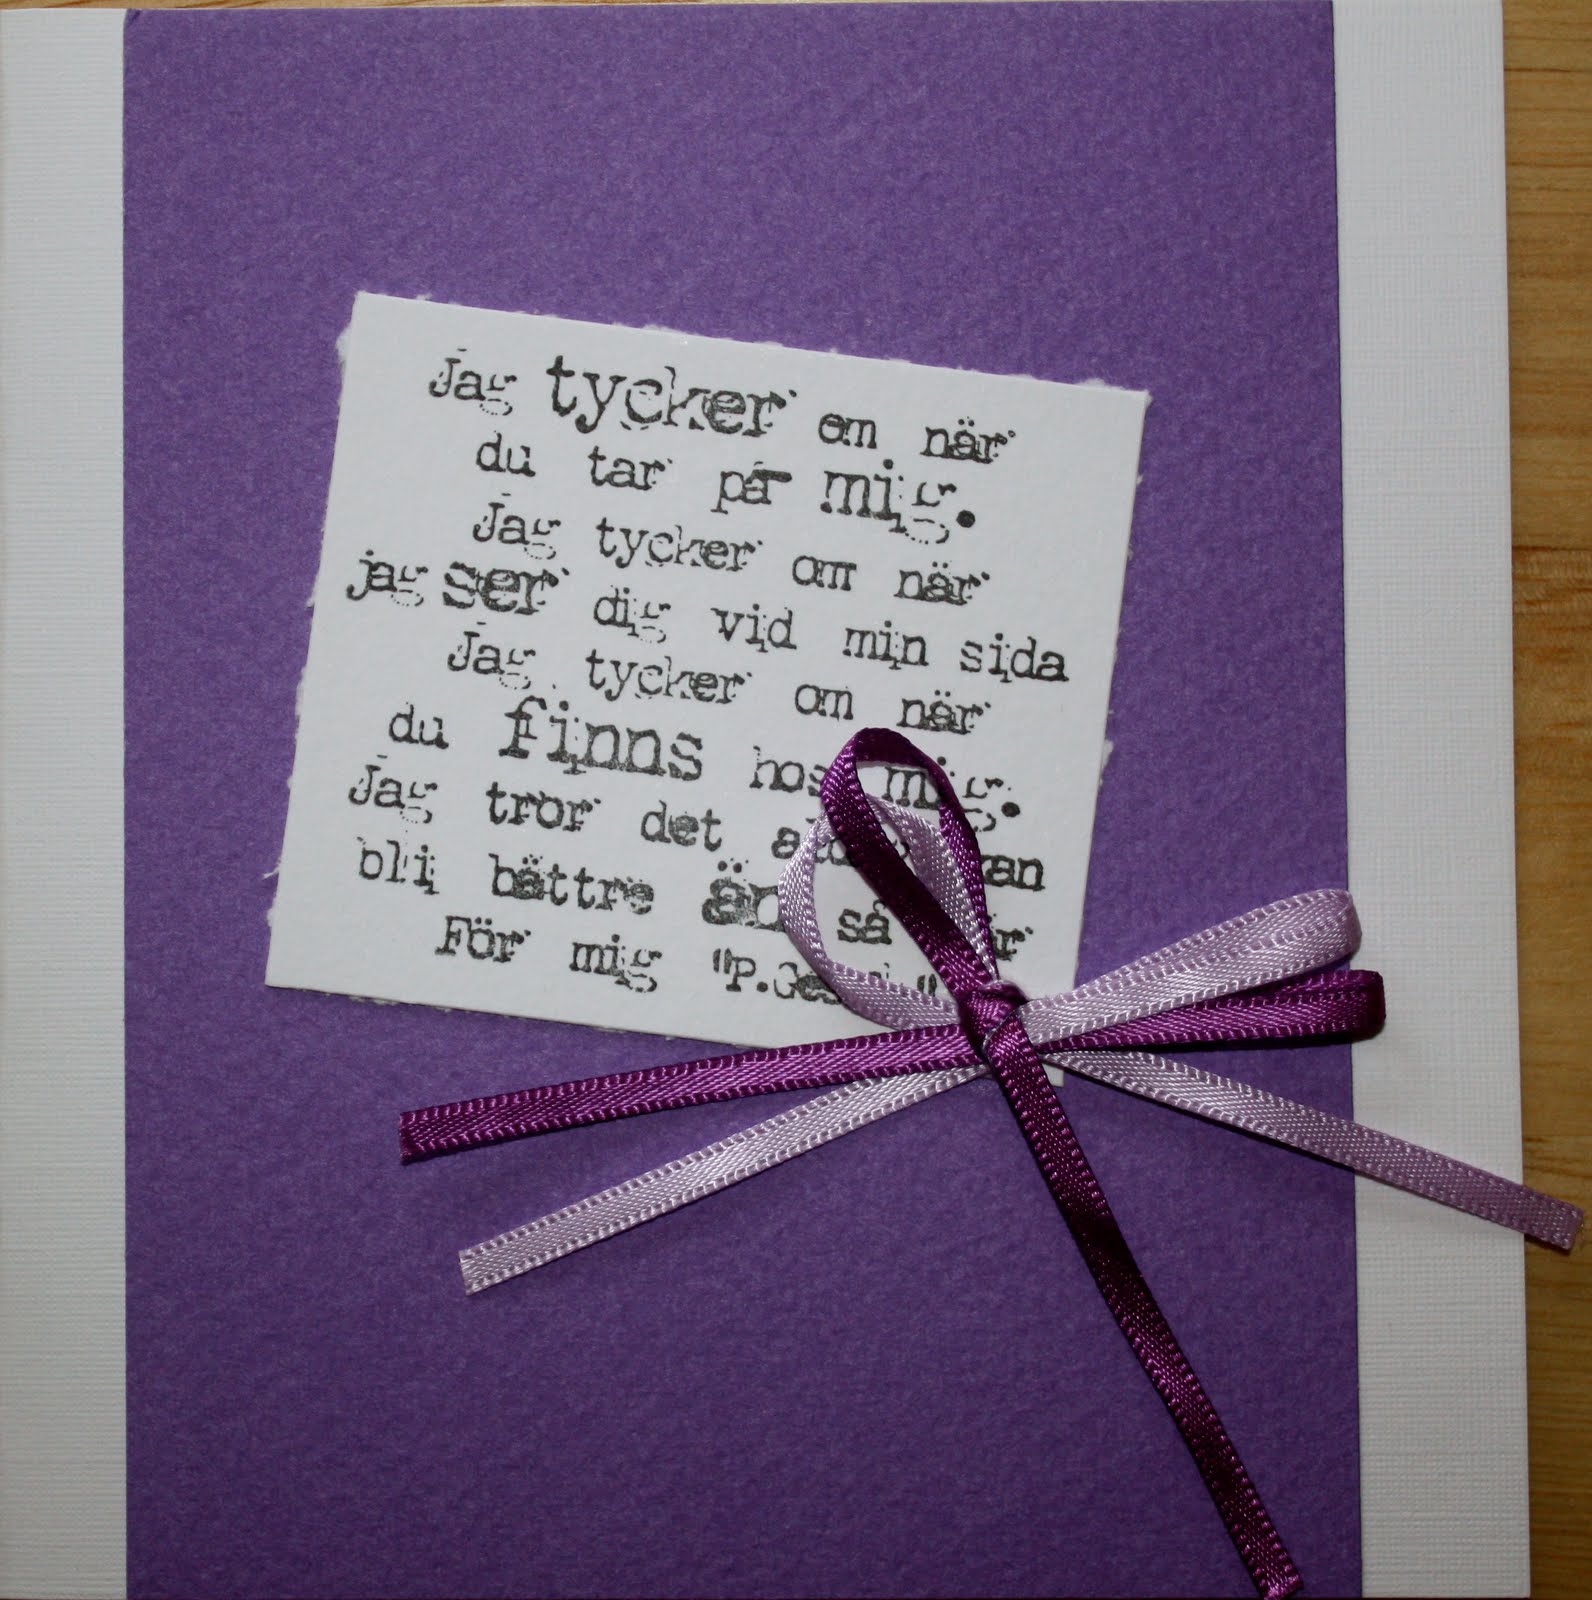 Jag tycker om när
du tar på mig.
Jag tycker om när
jag ser dig vid min sida
Jag tycker om när
du finns hos mig.
Jag tror det kan
bli bättre än så
För mig